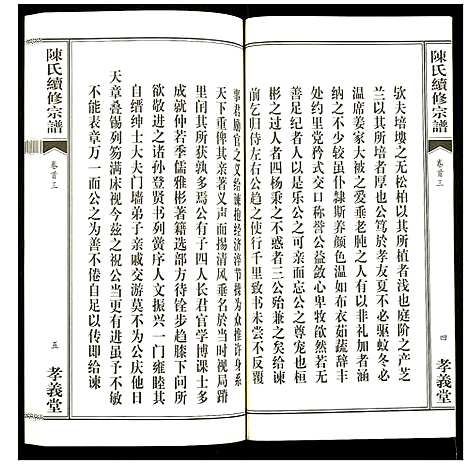 陳氏續修宗譜
卷首三
四
孝義堂
欤夫培塿之无松柏以其所植者浅也庭阶之产芝
兰以其所培者厚也公笃於孝友夏不必驱蚊冬必
温席姜家大被之爱垂老肫之人有非礼加者涵
纳之不少较虽仆隸斯养颜色温如布衣茹蔬辞丰
处约里党矜式交口称誉公益歛心卑牧欿然若无
善足纪者人以是乐公之可亲而忘公之尊宠也桓
彬之过人者四杨秉之不惑者三公殆兼之矣给谏
前乞归侍左右公趋之使行千里致书未尝不反覆
事君励官之义给谏抱经济淬节操为众推许身系
天下重俾其亲者义声而揚清风垂名於当时视局蹐
里闬其所获孰多焉公有子四人长君官学博课士多
成就仲若季儒雅彬彬著籍选部方待铨步趋膝下问所
欲敬进之诸孙登贤书列黉序人文振兴一门雍睦其
自缙绅士大夫门墙弟子亲戚交游莫不公庆他日
天章叠锡列笏满床视今兹之祝公当更进虽予不敏
不能表章万一而公之为善不倦自足以
陳氏續修宗譜
卷首三
五
孝義堂